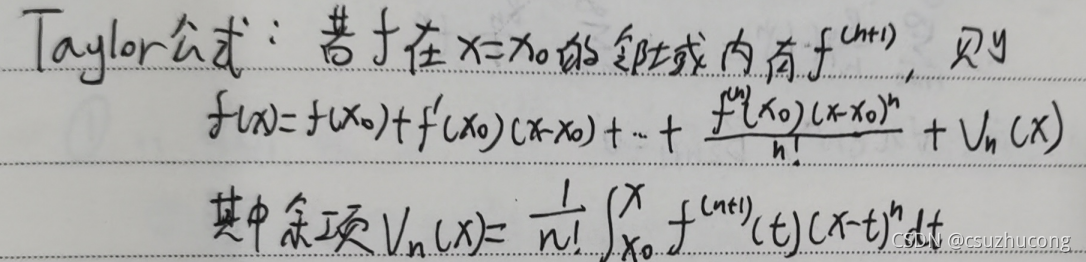 Taylor公式：若f在x=x₀的邻域内有f⁽ⁿ⁺¹⁾，则
f(x)=f(x₀)+f'(x₀)(x-x₀)+…+ f⁽ⁿ⁾(x₀)(x-x₀)ⁿ/n! + Vₙ(x)
其中余项Vₙ(x)= 1/n! ∫ₓ₀ˣ f⁽ⁿ⁺¹⁾(t)(x-t)ⁿdt
CSDN @csuzhucong